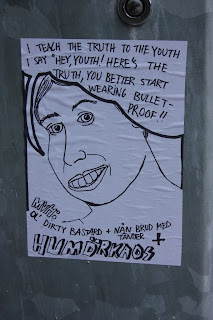 I TEACH THE TRUTH TO THE YOUTH
I SAY "HEY, YOUTH! HERE'S THE
TRUTH, YOU BETTER START
WEARING BULLET-
PROOF!!
DIRTY BASTARD + NÅN BRUD MED
TÄNDER +
HUMÖRKAOS